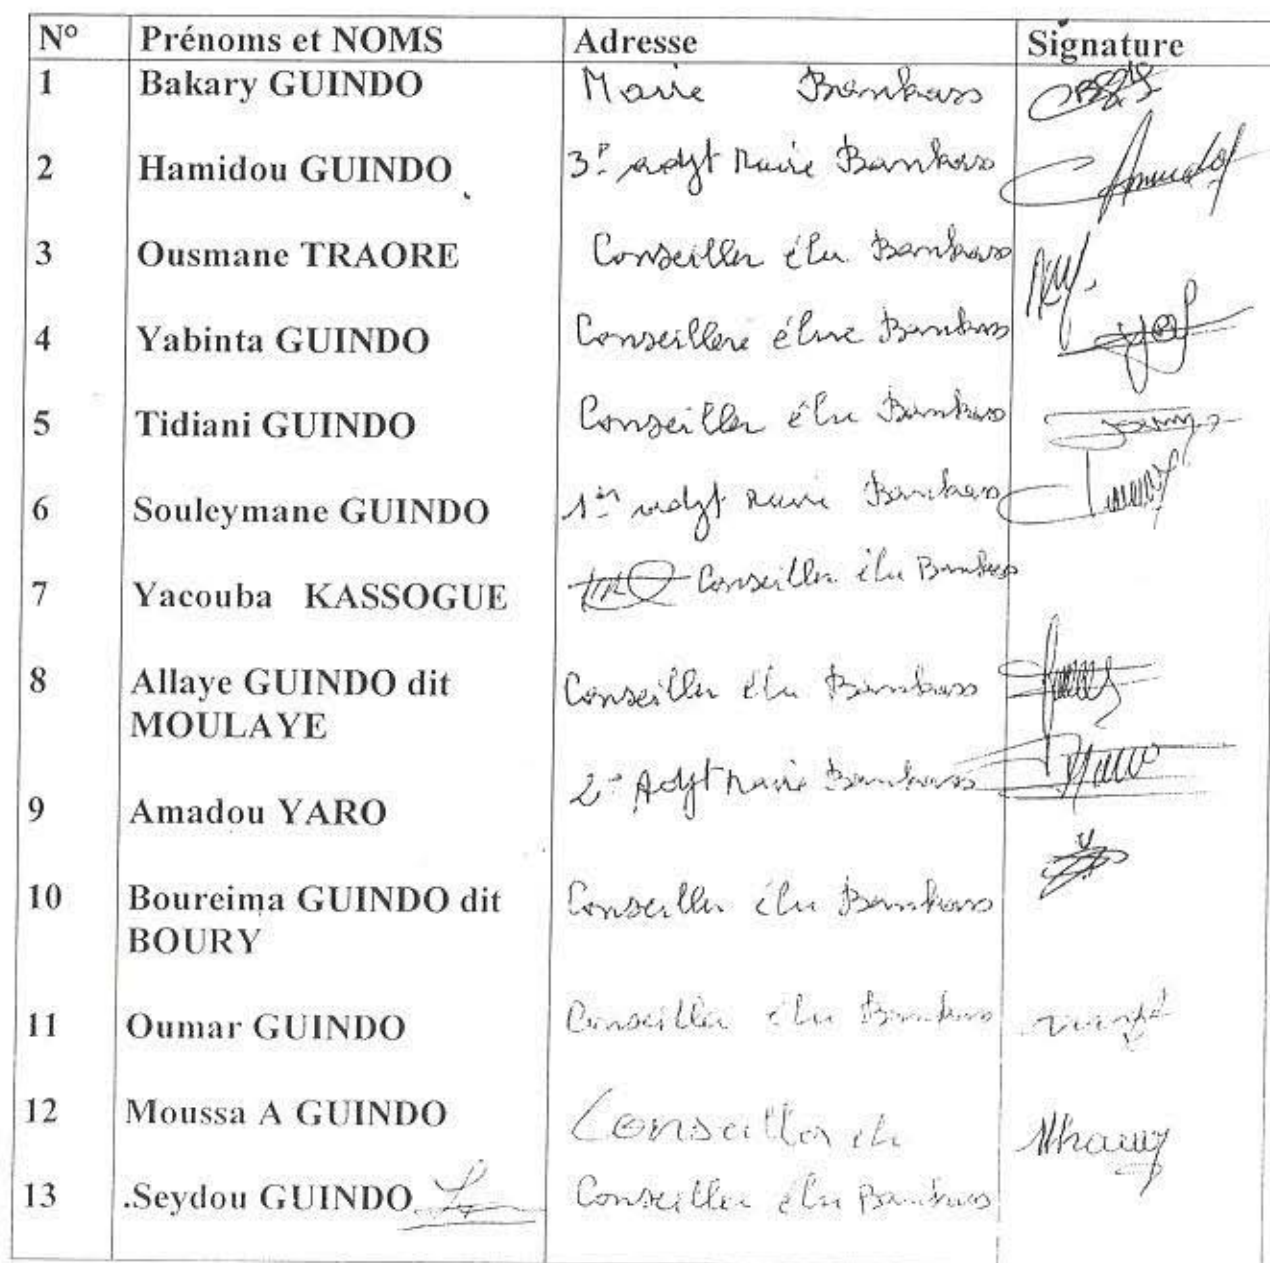 N° Prénoms et NOMS Adresse Signature
1 Bakary GUINDO Maire Bankass
2 Hamidou GUINDO 3e adjt Maire Bankass
3 Ousmane TRAORE Conseiller élu Bankass
4 Yabinta GUINDO Conseillere élue Bankass
5 Tidiani GUINDO Conseiller élu Bankass
6 Souleymane GUINDO 1er adjt Maire Bankass
7 Yacouba KASSOGUE Conseiller élu Bankass
8 Allaye GUINDO dit Conseiller élu Bankass
MOULAYE
9 Amadou YARO 2e Adjt Maire Bankass
10 Boureima GUINDO dit Conseiller élu Bankass
BOURY
11 Oumar GUINDO Conseiller élu Bankass
12 Moussa A GUINDO Conseiller élu
13 .Seydou GUINDO Conseiller élu Bankass